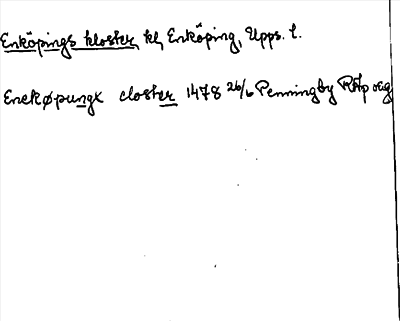 Enköpings kloster, kl, Enköping, Upps. l.
Enekøpungx closter 1478 26/6 Penningby RAp org